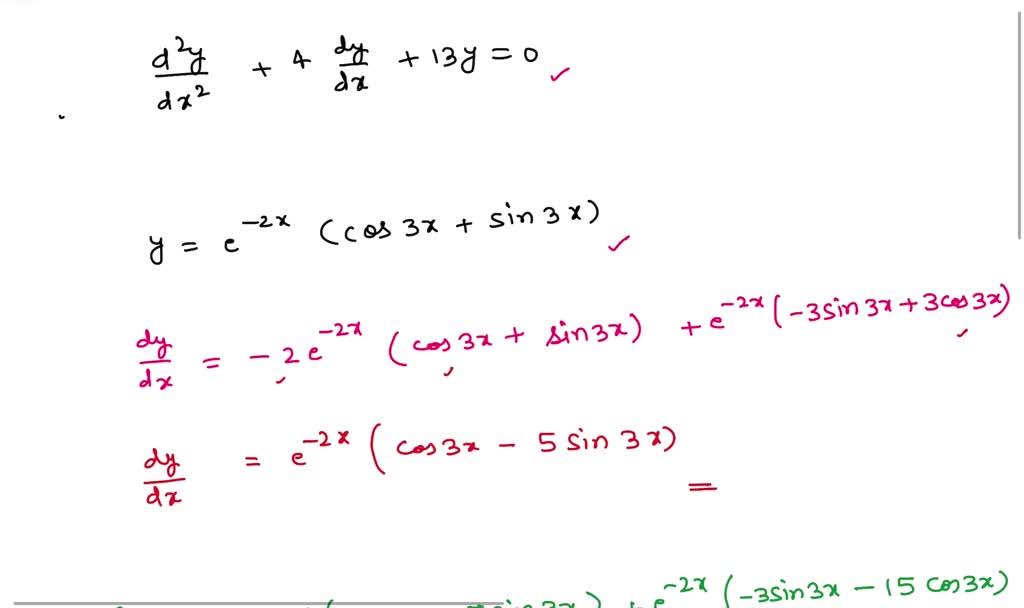 d²y/dx² + 4 dy/dx + 13y = 0
y = e^-2x (cos 3x + sin 3x)
dy/dx = -2e^-2x (cos 3x + sin 3x) + e^-2x (-3sin 3x + 3cos 3x)
dy/dx = e^-2x (cos 3x - 5 sin 3x)
sin 3x) + e^-2x (-3sin3x - 15 cos3x)